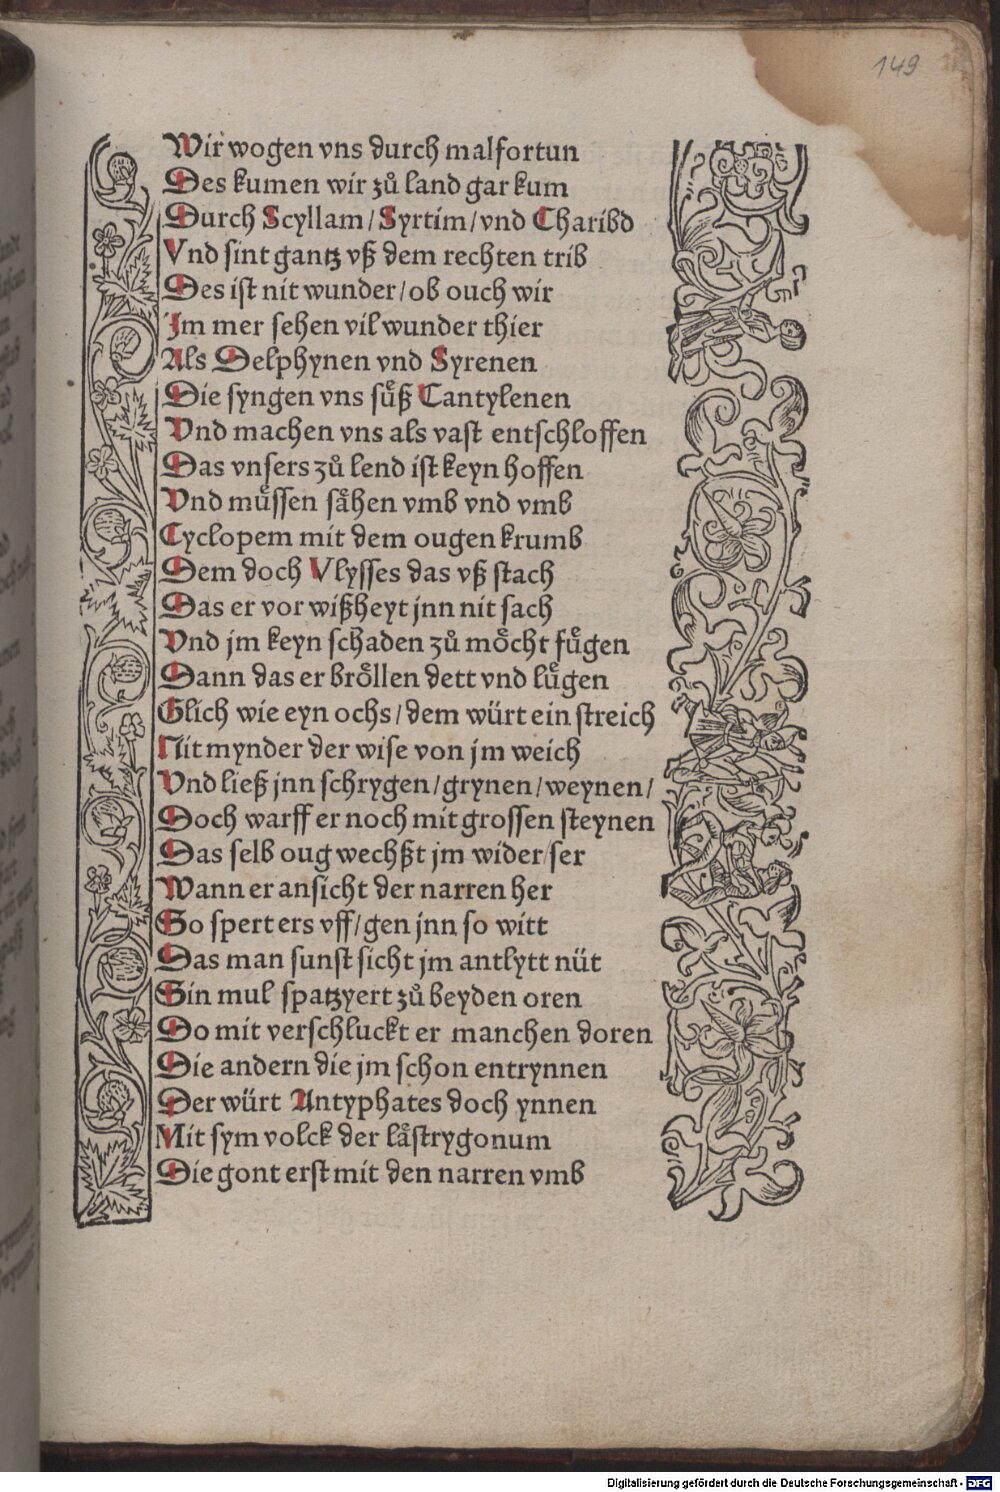 149
Wir wogen vns durch malfortun
Des kumen wir zů land gar kum
Durch Scyllam / Syrtim / vnd Charibd
Vnd sint gantz vß dem rechten trib
Des ist nit wunder / ob ouch wir
Im mer sehen vil wunder thier
Als Delphynen vnd Syrenen
Die syngen vns sůß Cantylenen
Vnd machen vns als vast entschloffen
Das vnsers zů lend ist keyn hoffen
Vnd můssen såhen vmb vnd vmb
Cyclopem mit dem ougen krumb
Dem doch Vlysses das vß stach
Das er vor wißheyt jnn nit sach
Vnd jm keyn schaden zů moͤcht fuͤgen
Dann das er broͤllen dett vnd luͤgen
Glich wie eyn ochs / dem würt ein streich
Nit mynder der wise von jm weich
Vnd ließ jnn schrygen / grynen / weynen /
Doch warff er noch mit grossen steynen
Das selb oug wechßt jm wider / ser
Wann er ansicht der narren her
So spert ers vff / gen jnn so witt
Das man sunst sicht jm antlytt nüt
Sin mul spatzyert zů beyden oren
Do mit verschluckt er manchen doren
Die andern die jm schon entrynnen
Der würt Antyphates doch ynnen
Mit sym volck der låstrygonum
Die gont erst mit den narren vmb
Digitalisierung gefördert durch die Deutsche Forschungsgemeinschaft - DFG